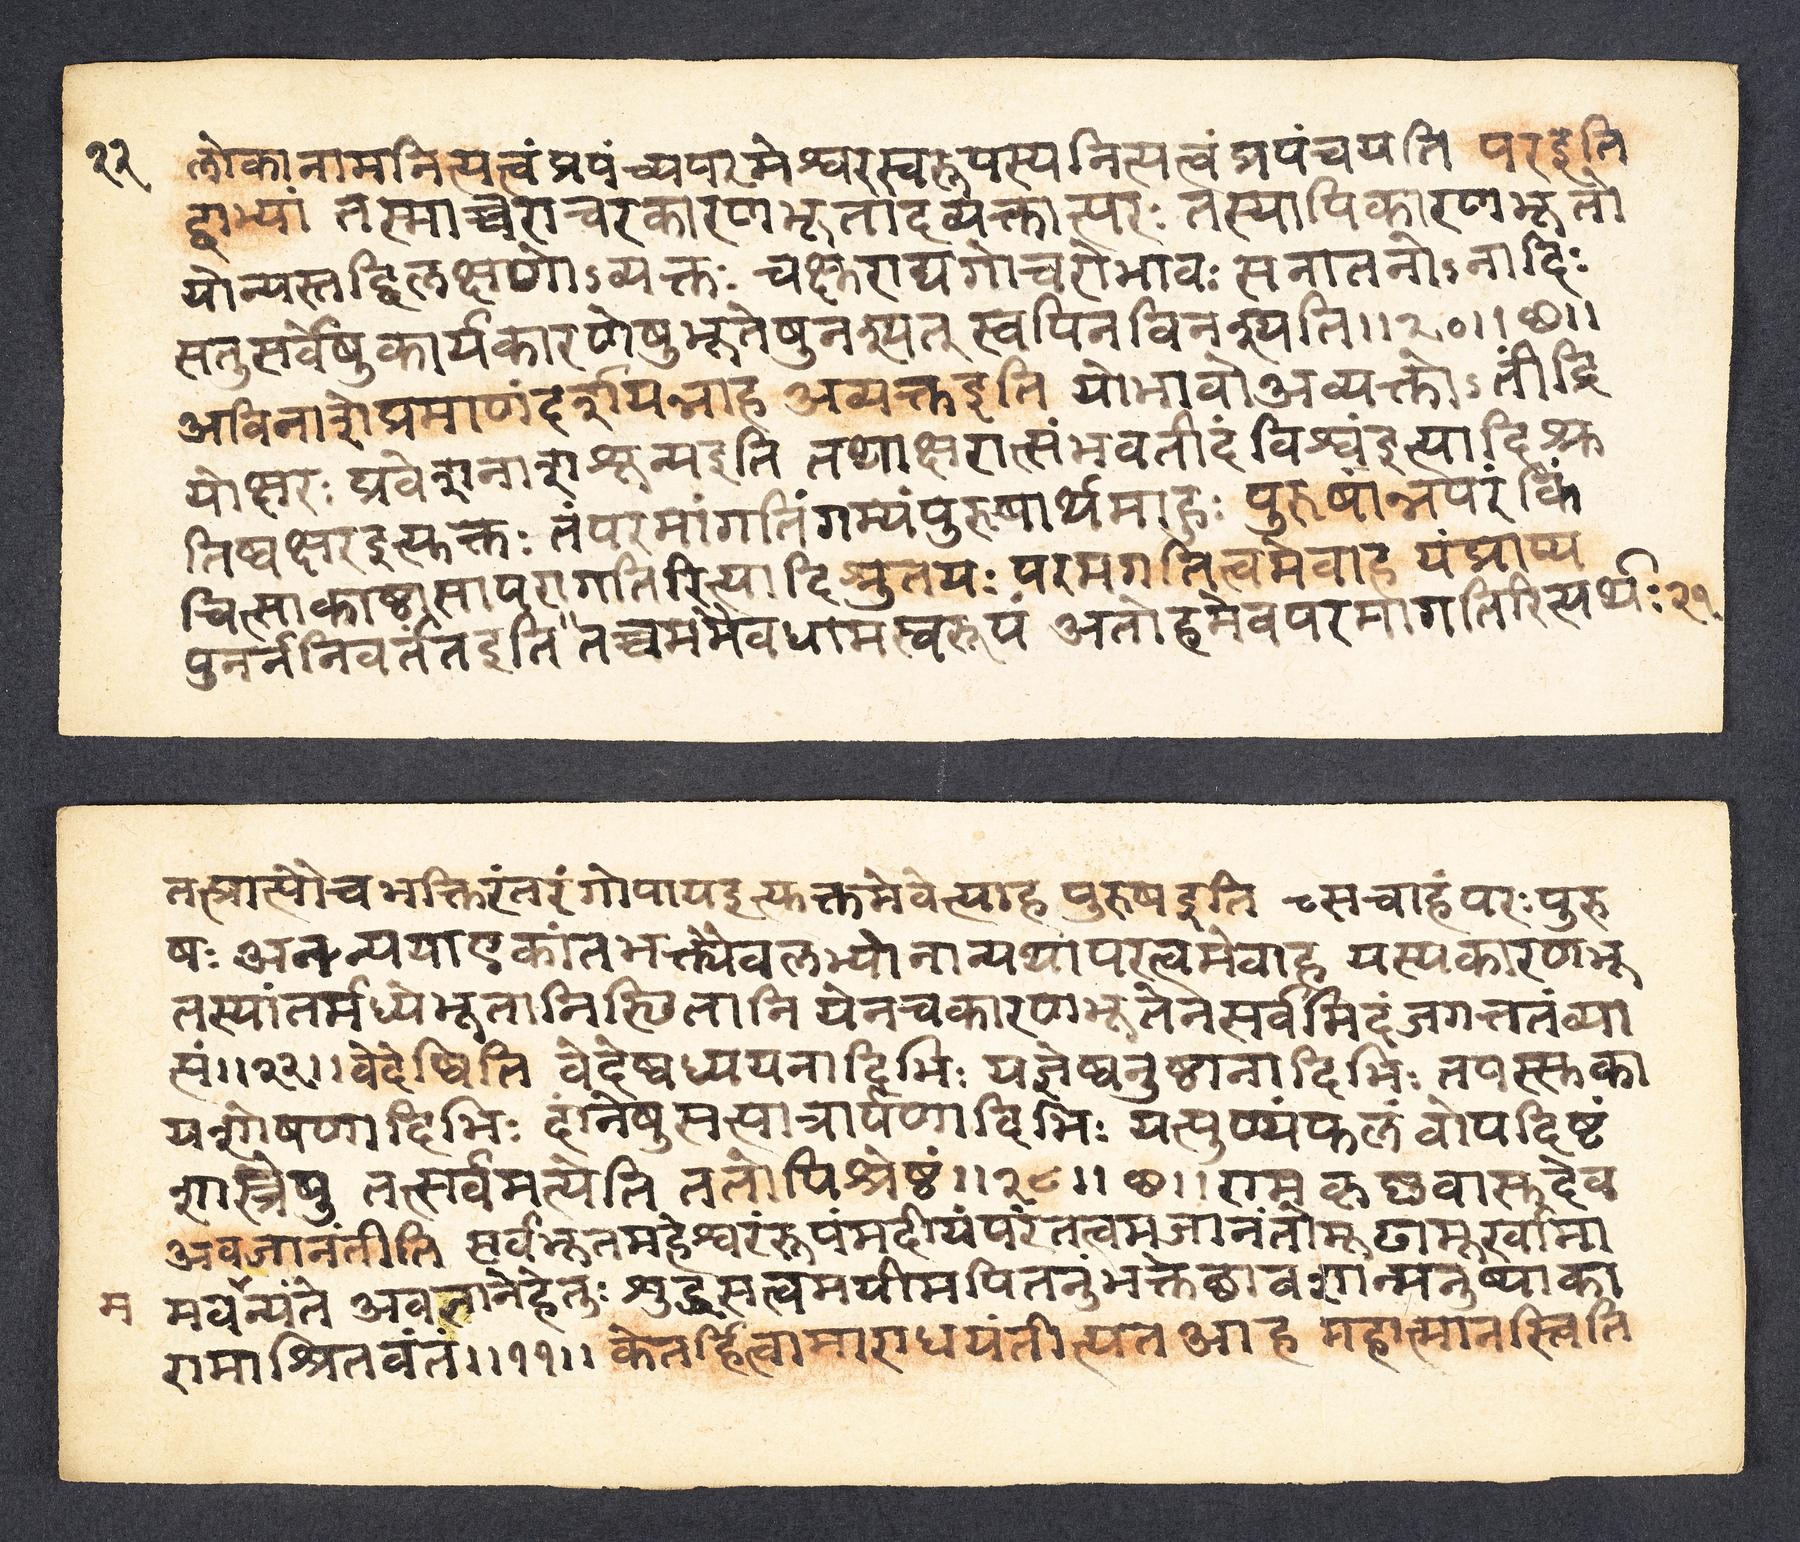 २२ लोकानामनित्यत्वंप्रपंच्यपरमेश्वरस्वरूपस्यनित्यत्वंप्रपंचयति परइति
द्वाभ्यां तस्माच्चराचरकारणभूतादव्यक्तात्परः तस्यापिकारणभूतो
योन्यस्तद्विलक्षणोऽव्यक्तः चक्षुराद्यगोचरोभावः सनातनोऽनादिः
सतुसर्वेषुकार्यकारणेषुभूतेषुनश्यत्स्वपिनविनश्यति॥२०॥छ॥
अविनाशेप्रमाणंदर्शयन्नाह अव्यक्तइति योभावोअव्यक्तोऽतींद्रि
योक्षरः प्रवेशनाशशून्यइति तथाक्षरात्संभवतीदंविश्वंइत्यादिश्रु
तिष्वक्षरइत्युक्तः तंपरमांगतिंगम्यंपुरुषार्थमाहुः पुरुषान्नपरंकिं
चित्साकाष्ठासापरागतिरित्यादिश्रुतयः परमगतित्वमेवाह यंप्राप्य
पुनर्ननिवर्ततइति तच्चममैवधामस्वरूपं अतोहमेवपरमागतिरित्यर्थः२१
तत्प्राप्तौचभक्तिरंतरंगोपायइत्युक्तमेवेत्याह पुरुषइति सचाहंपरःपुरु
षः अनन्ययाएकांतभक्त्यैवलभ्योनान्यथापरत्वमेवाह यस्यकारणभू
तस्यांतर्मध्येभूतानिस्थितानि येनचकारणभूतेनसर्वमिदंजगत्ततंव्या
प्तं॥२२॥वेदेष्विति वेदेष्वध्ययनादिभिः यज्ञेष्वनुष्ठानादिभिः तपस्सुका
यशोषणादिभिः दानेषुसत्पात्रार्पणादिभिः यत्पुण्यंफलंवोपदिष्टं
शास्त्रेषु तत्सर्वमत्येति ततोपिश्रेष्ठं॥२८॥छ॥राम् कृष्णवासुदेव
अवजानंतीति सर्वभूतमहेश्वरंरूपंमदीयंपरंतत्वमजानंतोमूढामूर्खामा
म मवमन्यंते अवज्ञानेहेतुः शुद्धसत्वमयीमपितनुंभक्तेछावशान्मनुष्याका
रामाश्रितवंतं॥११॥ केतर्हित्वामाराधयंतीत्यतआह महात्मानस्त्विति